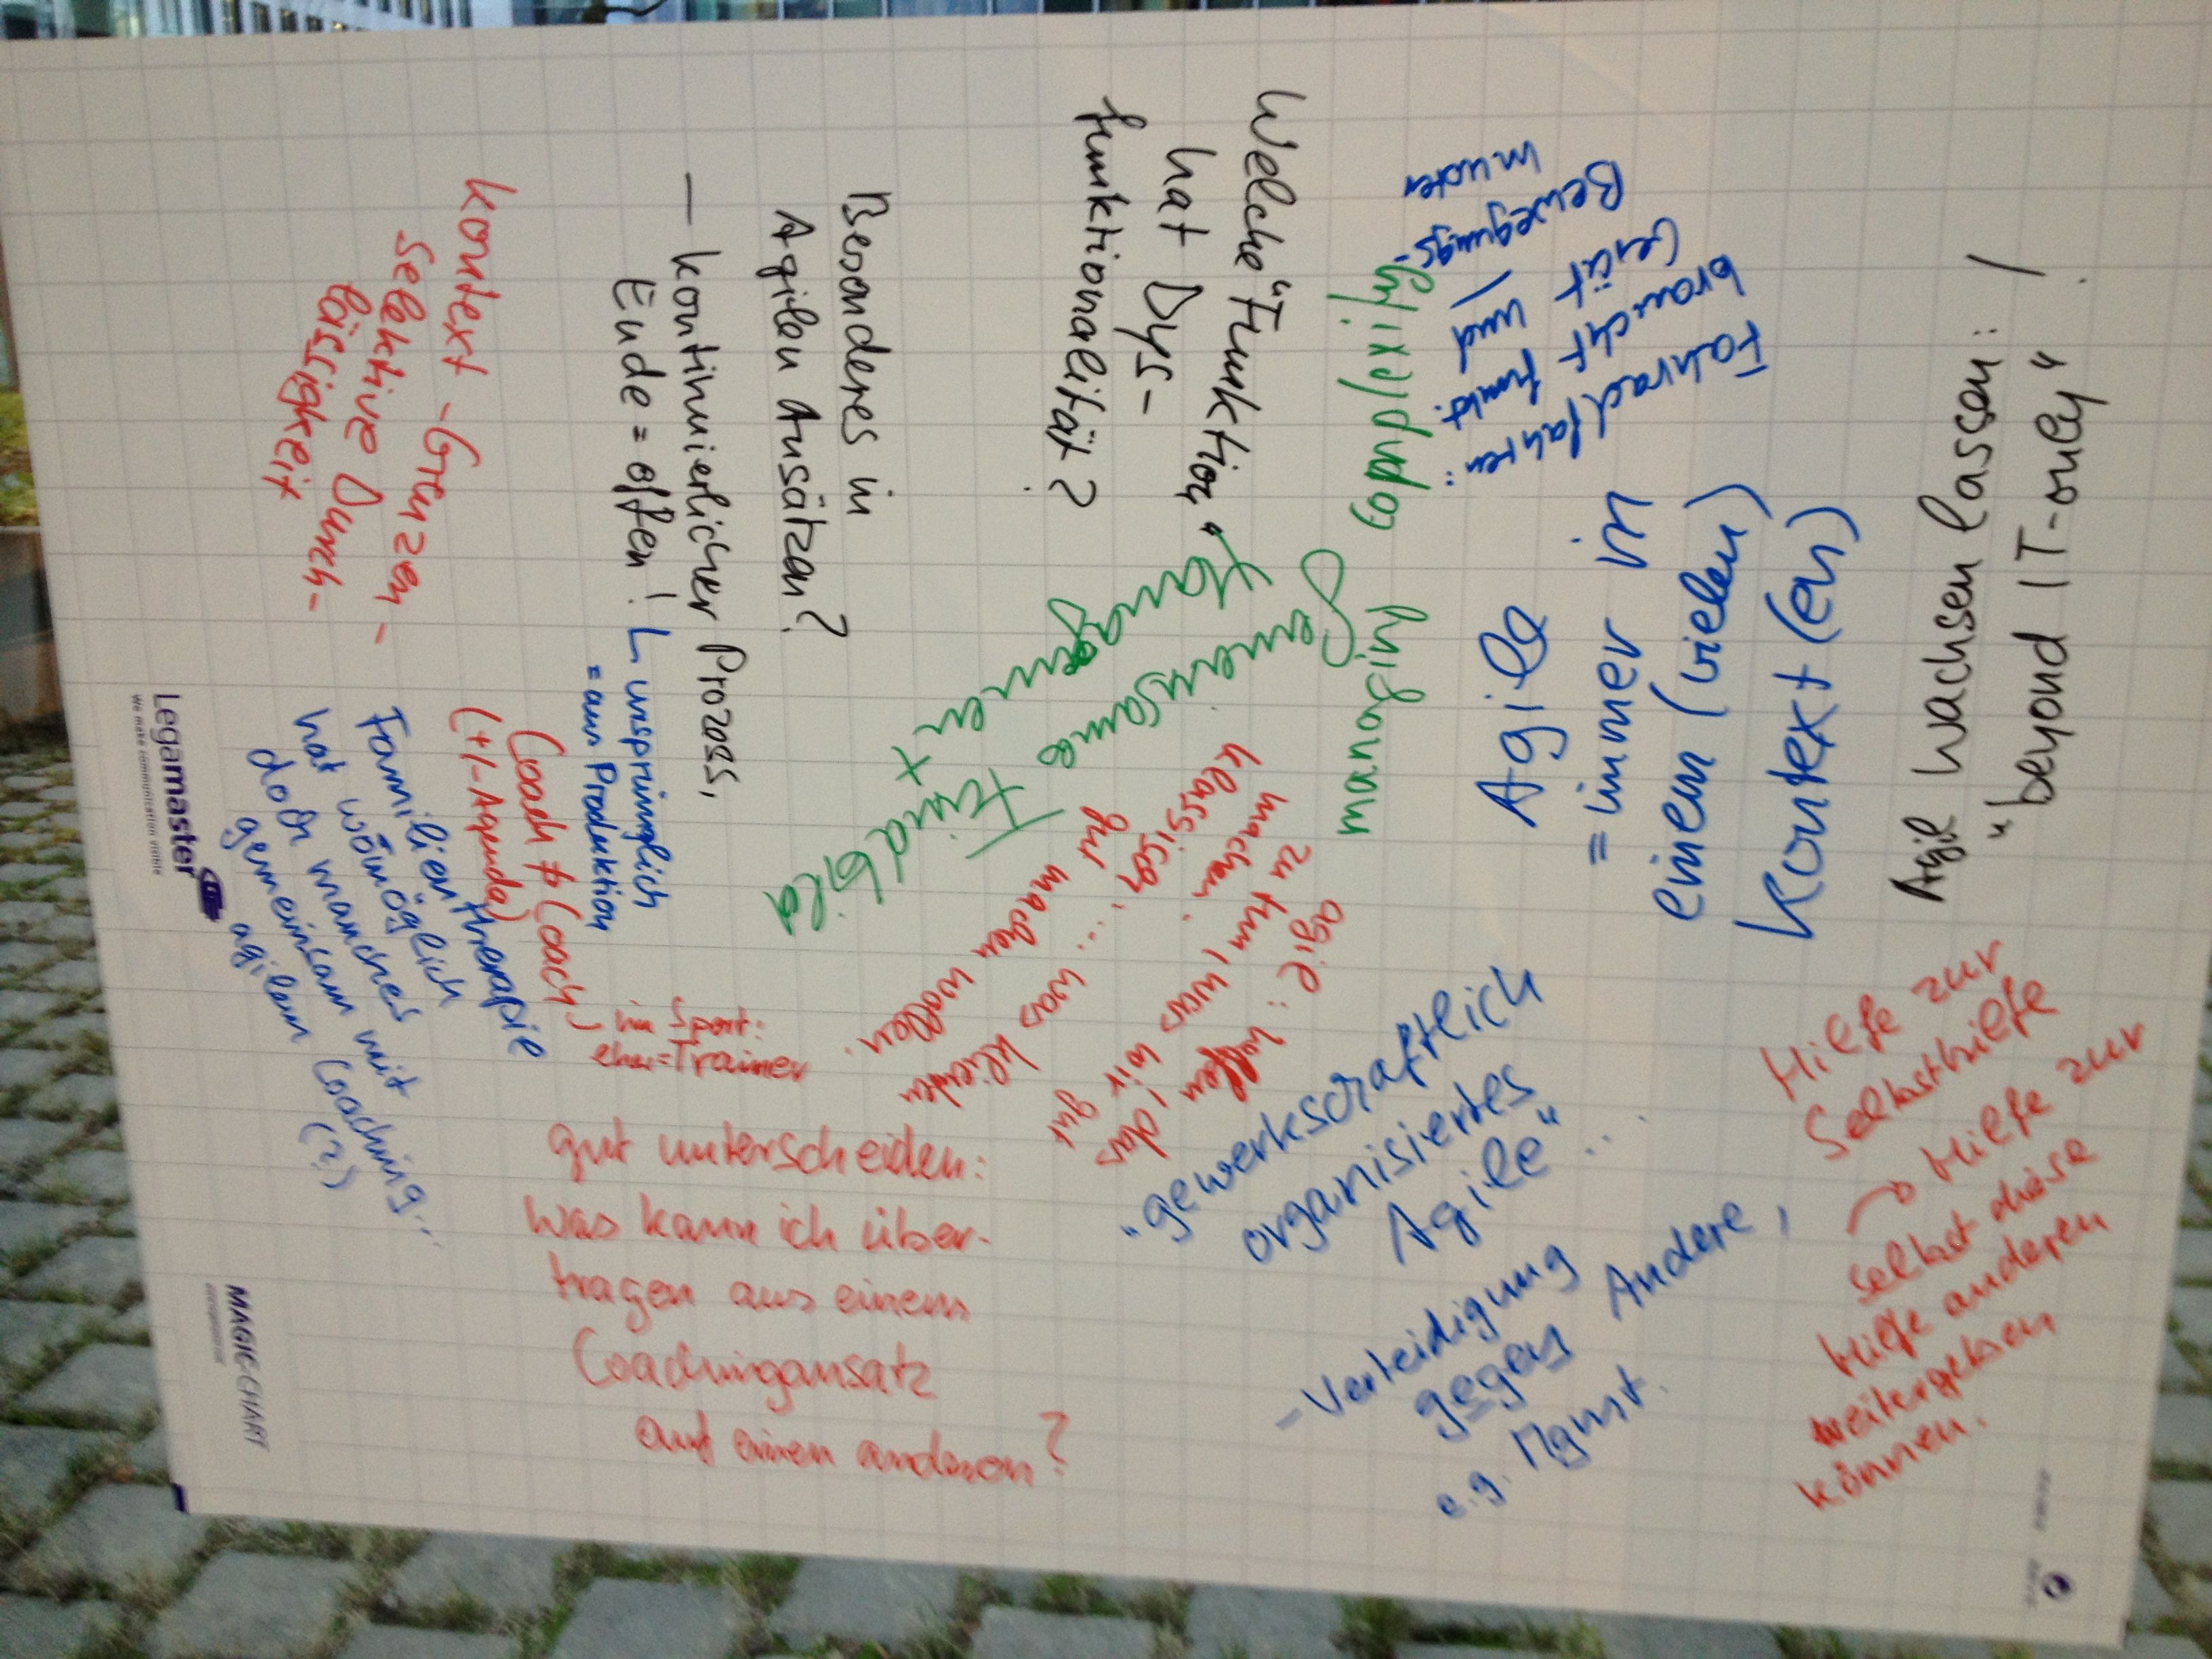 Agil wachsen lassen: /
"beyond IT-only"
Fahrrad fahren:
braucht funkt.
Gerät und /
Bewegungs-
muster
Agile
= immer in
einem (vielen)
Kontext (en)
Hilfe zur
Selbsthilfe
→ Hilfe zur
Selbst diese
Hilfe anderen
weitergeben
können.
managing
complexity
Welche "Funktion"
hat Dys-
funktionalität?
Gemeinsames Feindbild
Management
agil: helfen
zu tun, was wir gut
machen.
klassisch: ... was Klienten
gut machen wollen.
"gewerkschaftlich
organisiertes
Agile" ...
- Verteidigung
gegen Andere,
e.g. Mgmt.
Besonderes in
Agilen Ansätzen?
- kontinuierlicher Prozess,
Ende = offen!
ursprünglich
= aus Produktion
Kontext - Grenzen -
selektive Durch-
lässigkeit
Coach ≠ Coach
(+/- Agenda)
im Sport:
eher = Trainer
Familientherapie
hat womöglich
doch manches
gemeinsam mit
agilem Coaching...
(?)
gut unterscheiden:
was kann ich über-
tragen aus einem
Coachingansatz
auf einen anderen?
Legamaster
We make communication visible
MAGIC-CHART